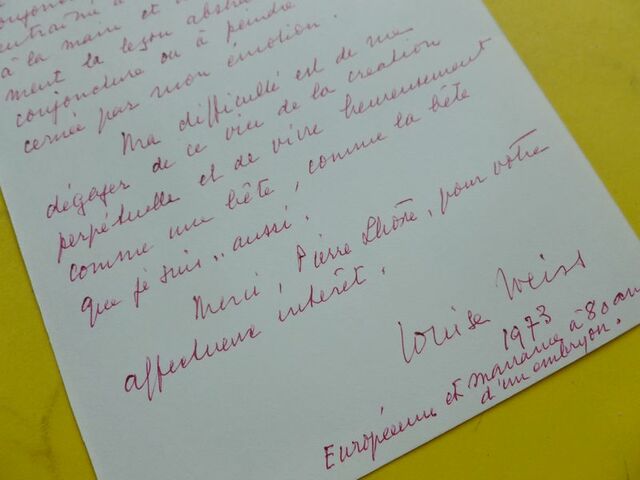 conjonc
entraîné à
à la main et
ment la leçon abstrai
conjoncture ou à peindre
cernée par mon émotion.
Ma difficulté est de me
dégager de ce vice de la création
perpétuelle et de vivre heureusement
comme une bête, comme la bête
que je suis.. aussi.
Merci, Pierre Lhoste, pour votre
affectueux intérêt.
Louise Weiss
1973
Européenne et marraine à 80 ans
d'un embryon.